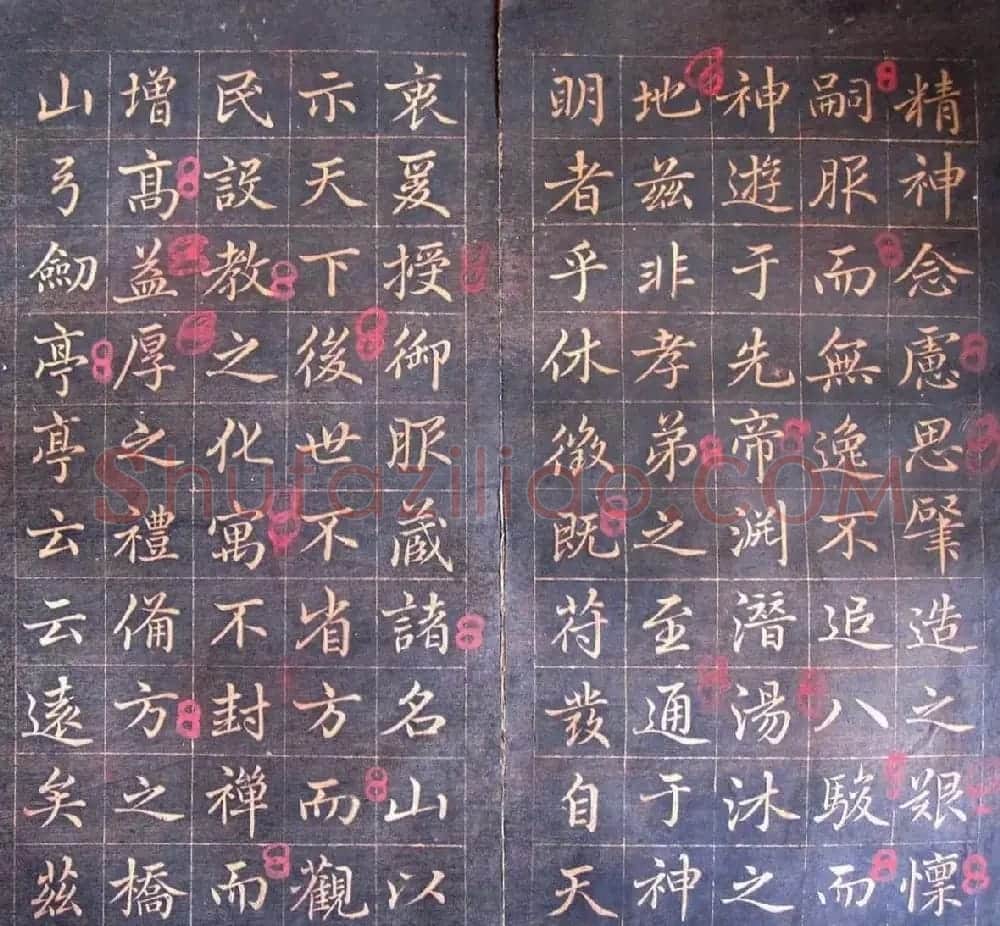 精神念慮思肇造之艱懍
嗣服而無逸不追八駿而
神遊于先帝渕潛湯沐之
地茲非孝弟之至通于神
眀者乎休徵既符發自天
衷爰授御服藏諸名山以
示天下後世不省方而觀
民設教之化寓不封禪而
增髙益厚之禮備方之橋
山弓劒亭亭云云遠矣茲
Shufaziliao.COM